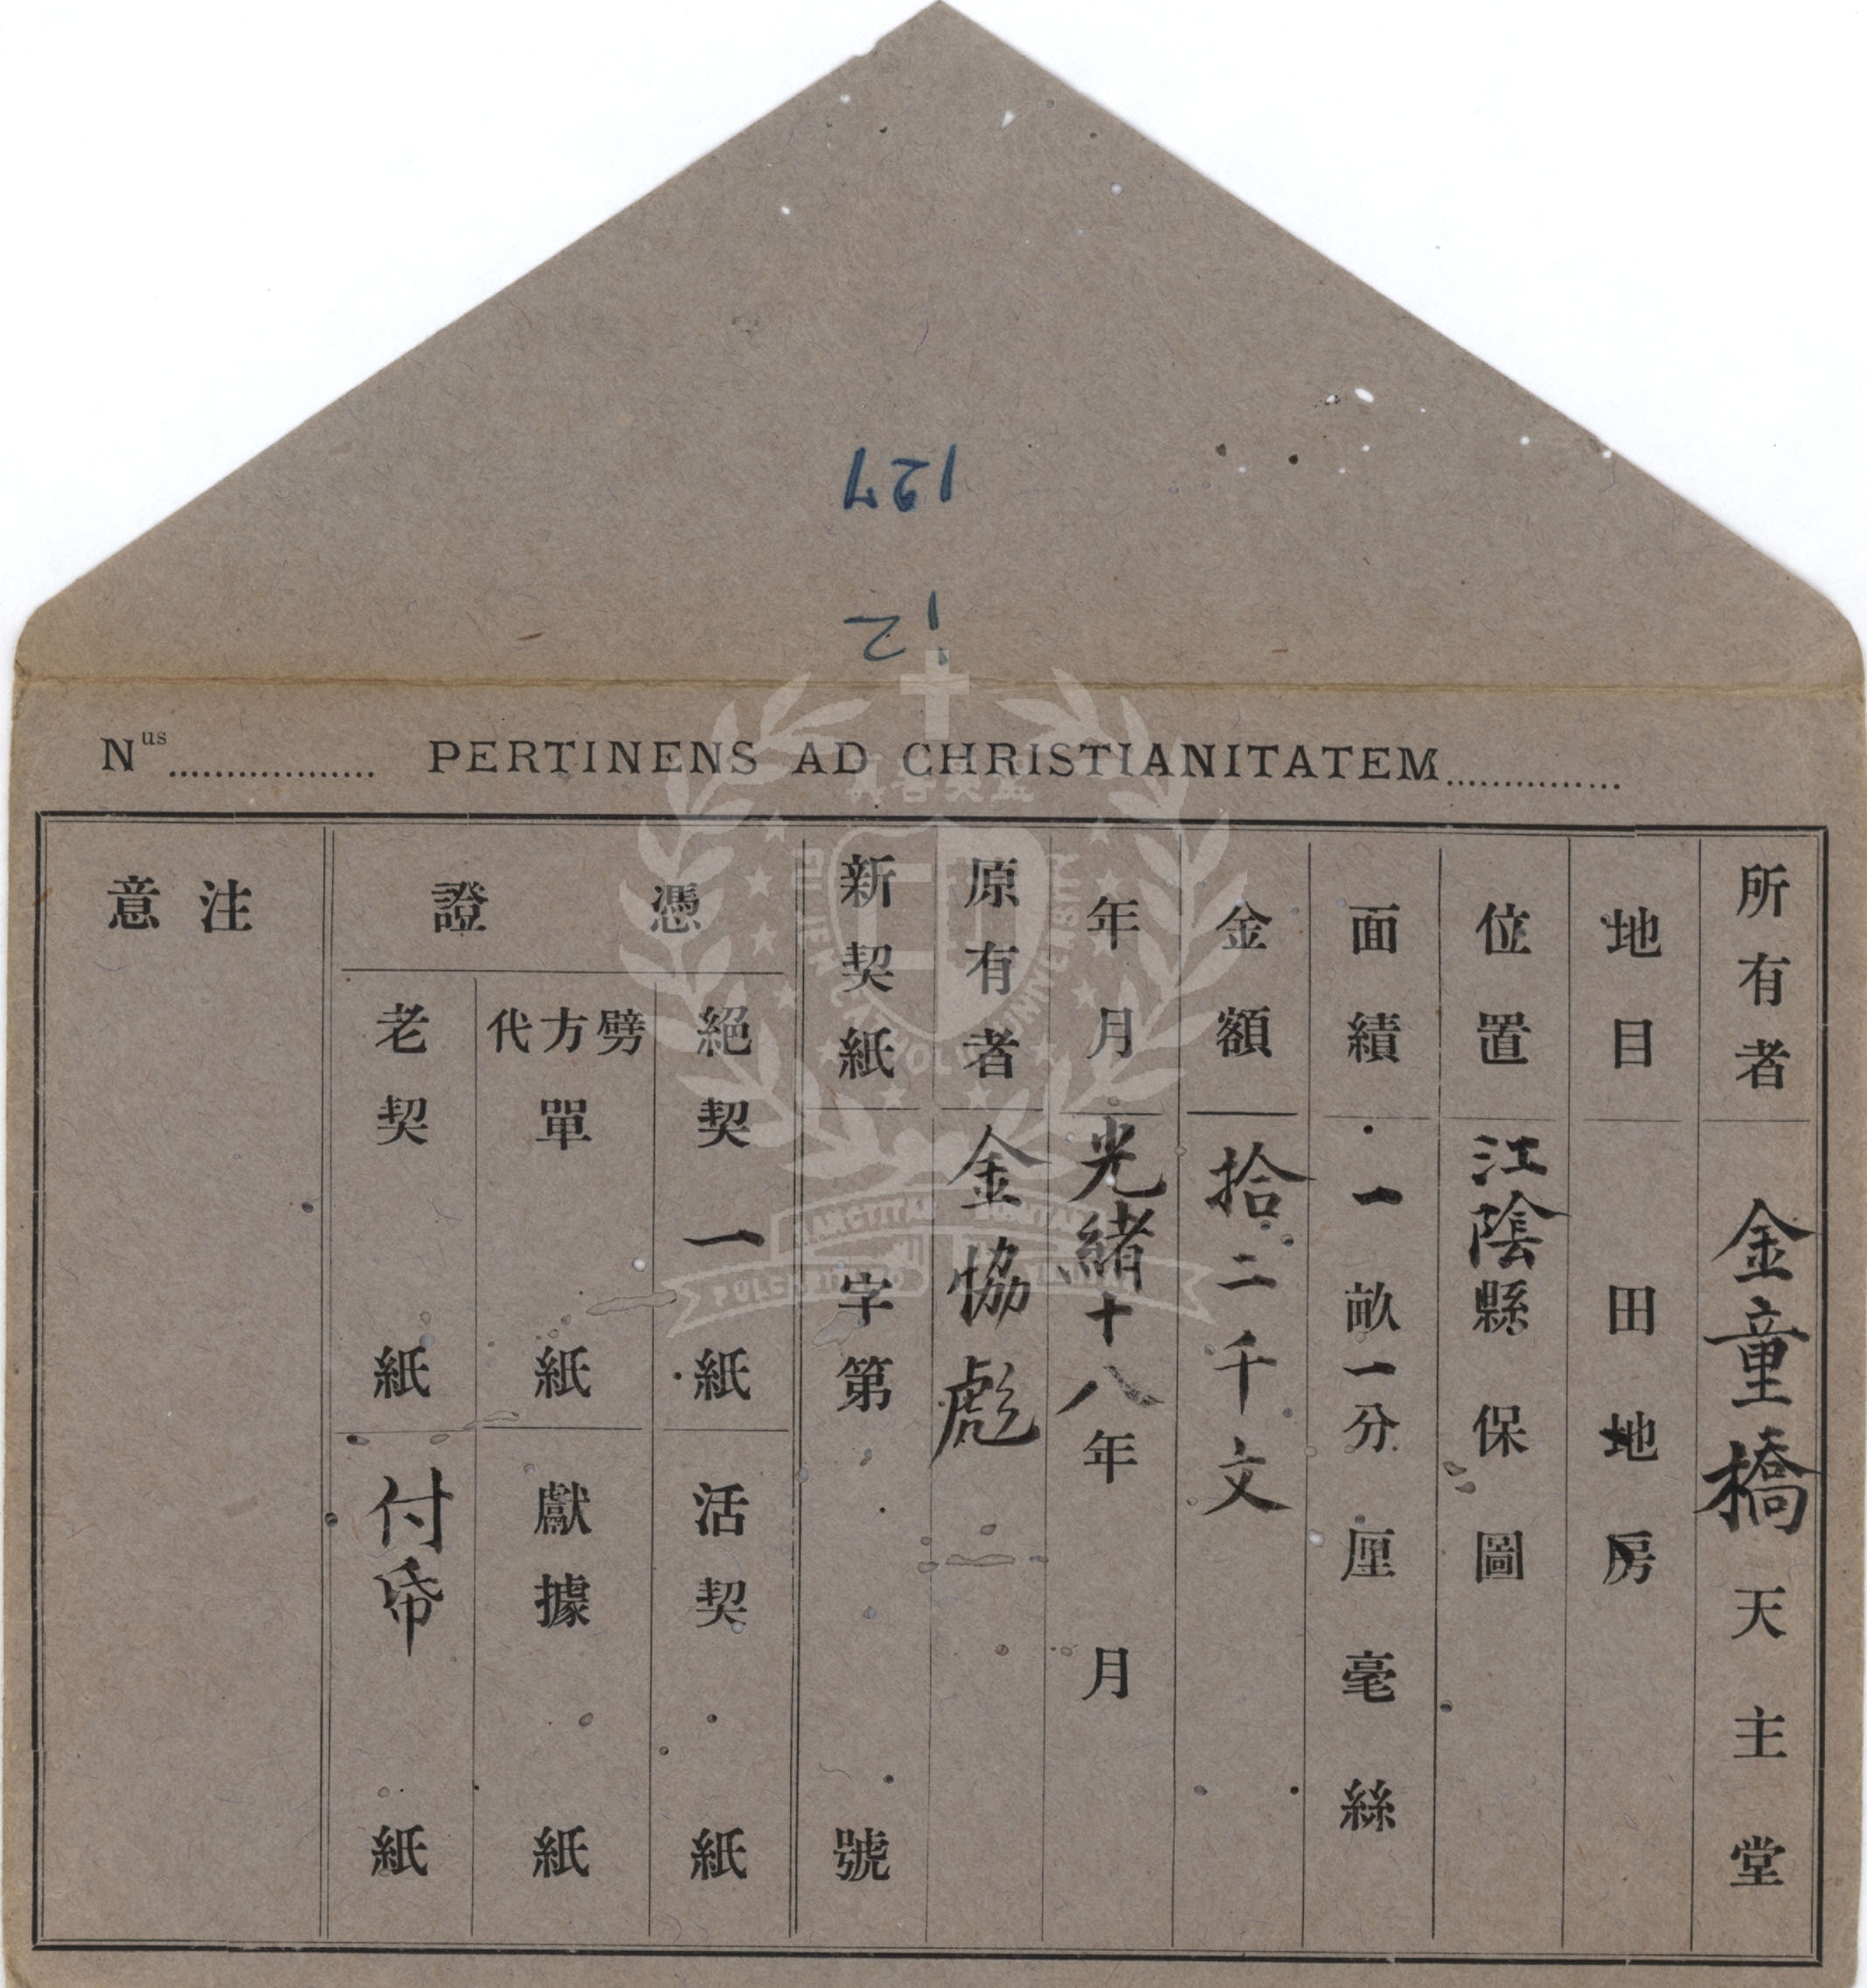 127
12
Nus .................. PERTINENS AD CHRISTIANITATEM ...............
所有者 金童橋天主堂
地目 田地房
位置 江陰縣 保 圖
面績 一畝一分 厘 毫 絲
金額 拾二千文
年月 光緒十八年 月
原有者 金協彪
新契紙 字第 號
憑證
絕契 一紙
活契 紙
劈方代單 紙
獻據 紙
老契 紙
付帋 紙
注意